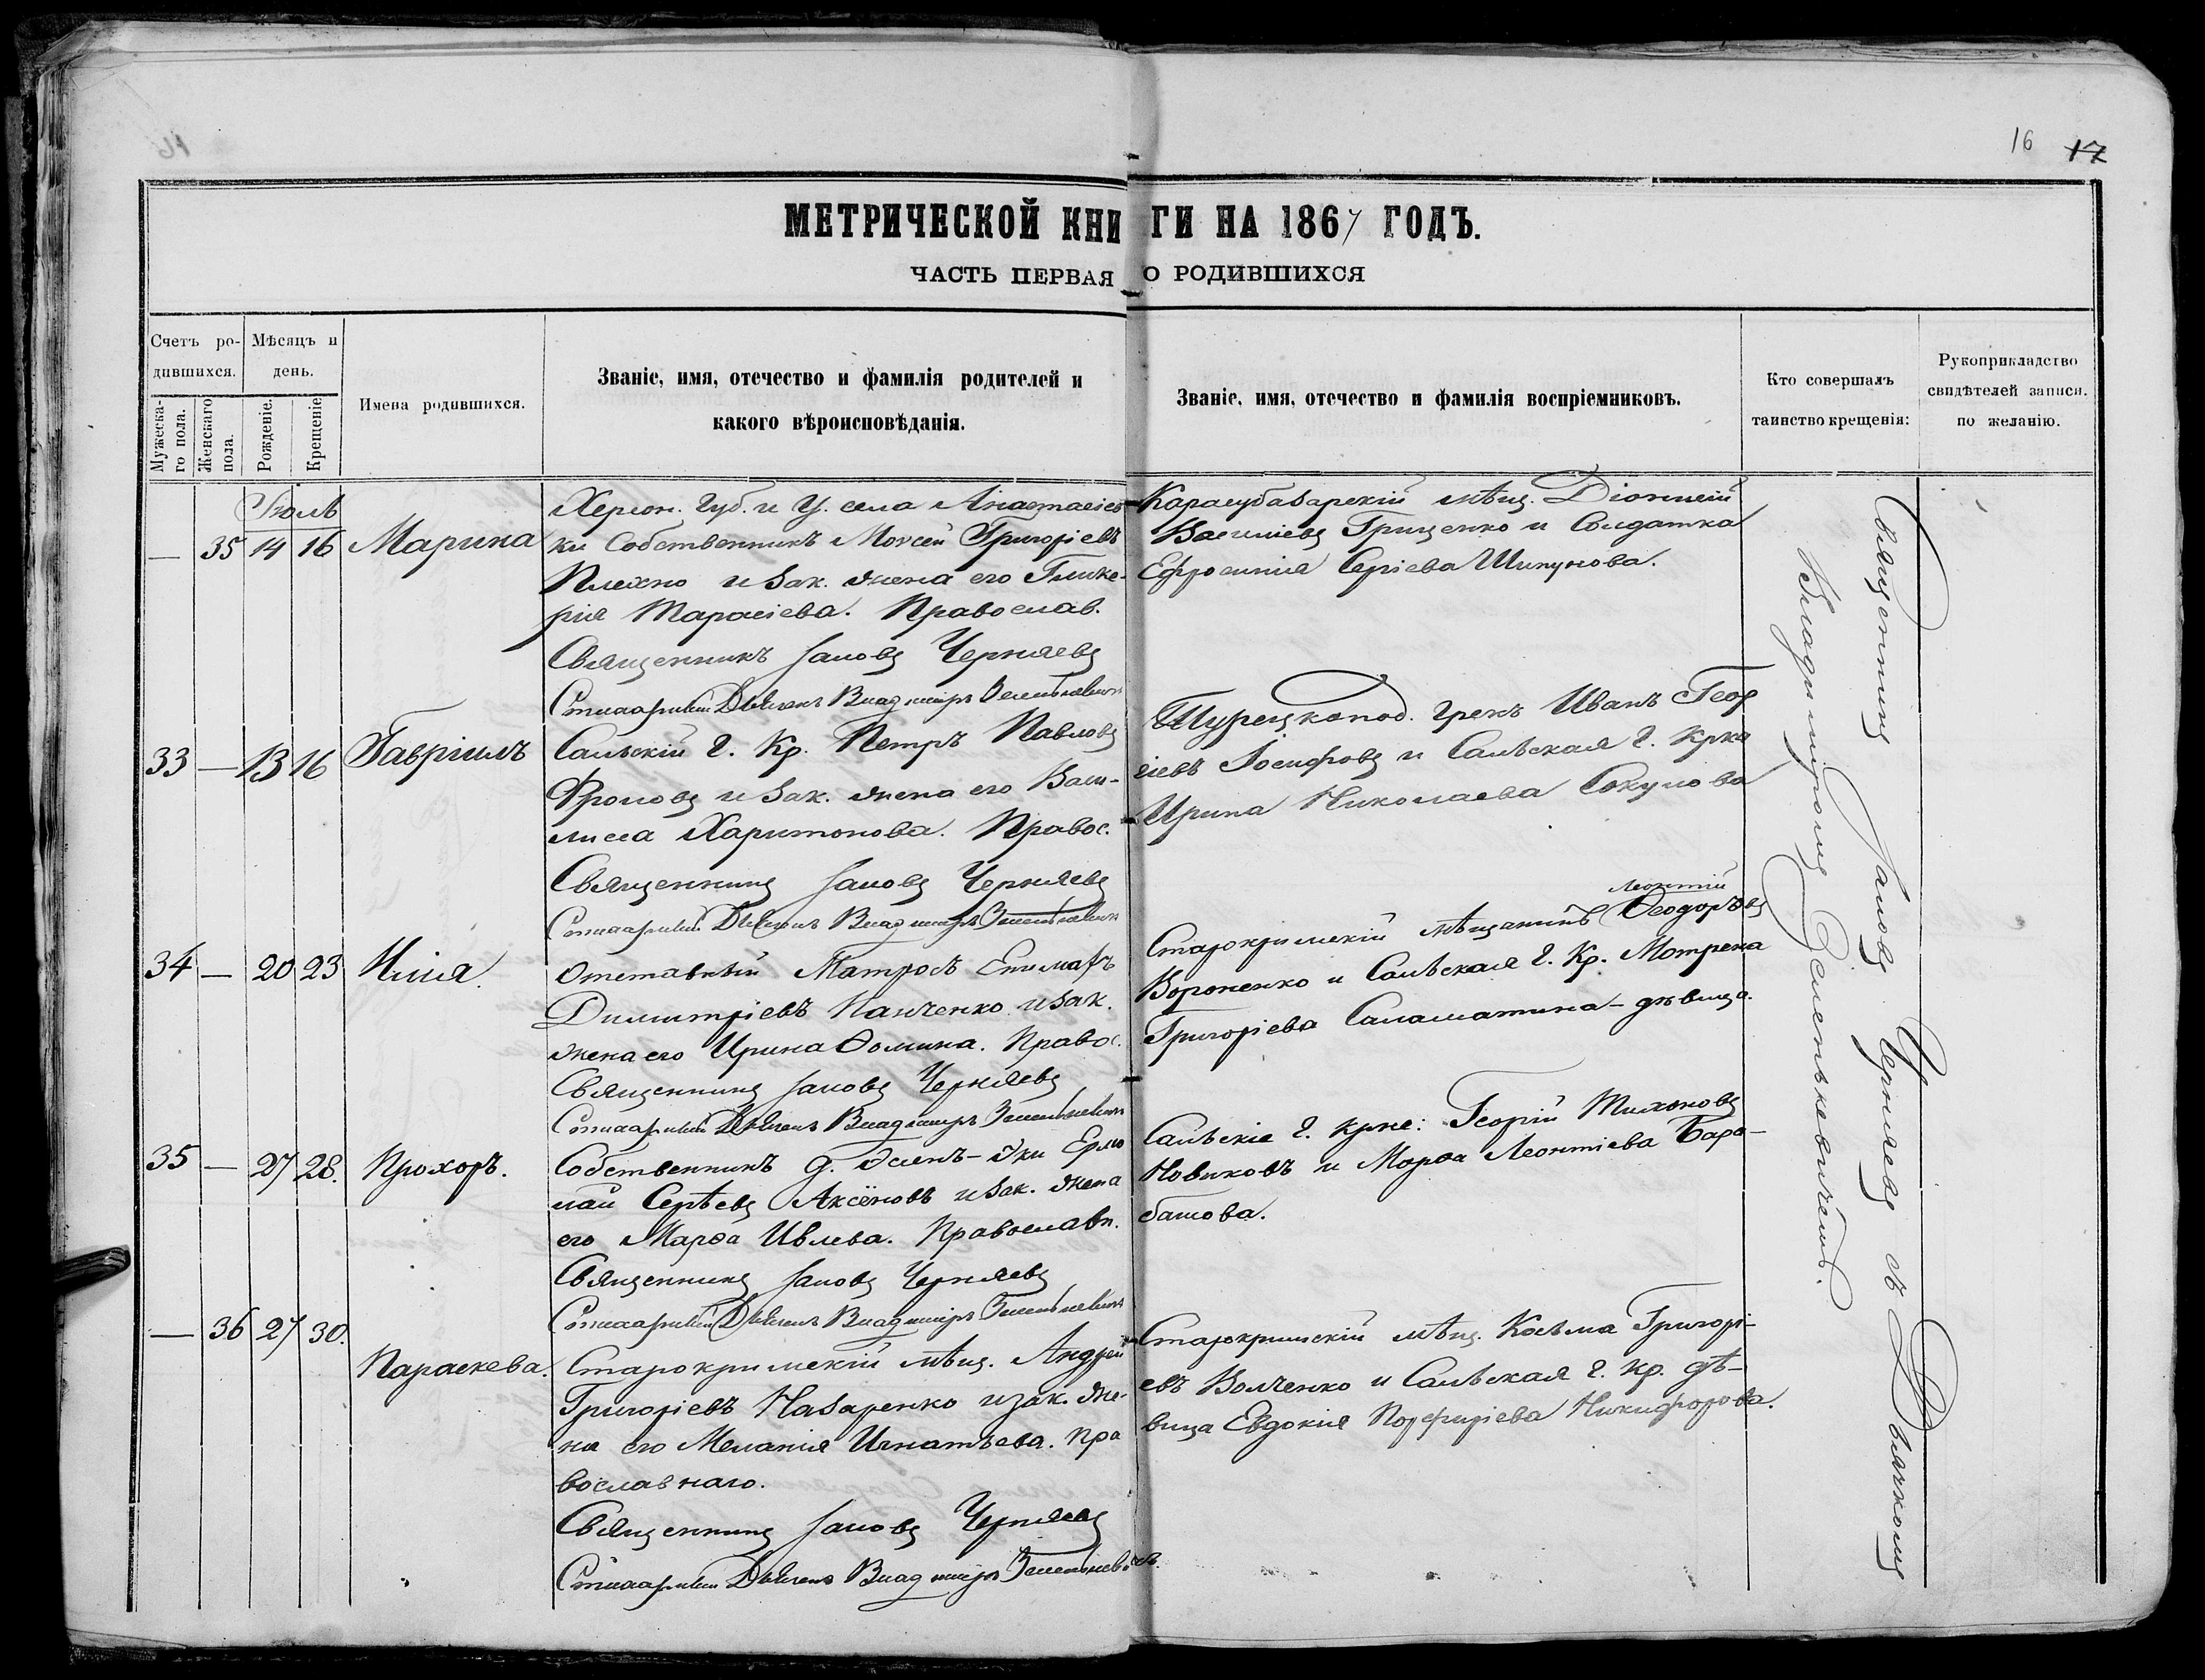 16 17
МЕТРИЧЕСКОЙ КНИГИ НА 1867 ГОДЪ.
ЧАСТЬ ПЕРВАЯ О РОДИВШИХСЯ
Счетъ ро-
дившихся.
Мужеска-
го пола.
Женскаго
пола.
Мѣсяцъ и
день.
Рожденіе.
Крещеніе
Имена родившихся.
Званіе, имя, отечество и фамилія родителей и
какого вѣроисповѣданія.
Званіе, имя, отечество и фамилія воспріемниковъ.
Кто совершалъ
таинство крещенія:
Рукоприкладство
свидѣтелей записи.
по желанію.
Іюль
— 35 14 16 Марина
Херсон. Губ. и У. села Анастасіев-
ки Собственникъ Моѵсей Григоріевъ
Плехно и зак. жена его Глике-
рия Тарасіева. Православ.
Священникъ Іаковъ Черняевъ
Стихарный Дьячекъ Владиміръ Зеленкевичъ
Карасубазарскій мѣщ. Діонисій
Василіевъ Гриценко и Солдатка
Ефросинія Сергіева Шипунова.
33 — 13 16 Гавріилъ
Салъскій Г. Кр. Петръ Павловъ
Фроловъ и зак. жена его Васи-
лисса Харитонова. Правос.
Священникъ Іаковъ Черняевъ
Стихарный Дьячекъ Владиміръ Зеленкевичъ
Турецкопод. Грекъ Иванъ Геор
гіевъ Іосифовъ и Салъская Г. Крка
Ирина Николаева Сокулова
34 — 20 23 Илія.
Отставный Матросъ Епимахъ
Димитріевъ Панченко и зак.
жена его Ирина Ѳомина. Правос.
Священникъ Іаковъ Черняевъ
Стихарный Дьячекъ Владиміръ Зеленкевичъ
Леонтій
Старокримскій мѣщанинъ Ѳеодоровъ
Вороненко и Салъская Г. Кр. Мотрена
Григоріева Саламатина - дѣвица.
35 — 27 28. Прохоръ.
Собственникъ д. Ермо
лай Сергѣевъ Аксёновъ и зак. жена
его Марѳа Ивлева. Православн.
Священникъ Іаковъ Черняевъ
Стихарный Дьячекъ Владиміръ Зеленкевичъ
Салъскіе Г. крне: Георгій Тихоновъ
Новиковъ и Марѳа Леонтіева Бара-
башова.
— 36 27 30. Параскева.
Старокримскій мѣщ. Андрей
Григоріевъ Назаренко и зак. же-
на его Меланія Игнатьева. Пра
вославнаго.
Священникъ Іаковъ Черняевъ
Стихарный Дьячекъ Владиміръ Зеленкевичъ.
Старокримскій мѣщ. Косьма Григорі-
евъ Волченко и Салъская Г. кр. дѣ-
вица Евдокія Порфиріева Никифорова.
Священникъ Іаковъ Черняевъ съ Дьячкомъ
Владиміромъ Зеленкевичемъ.